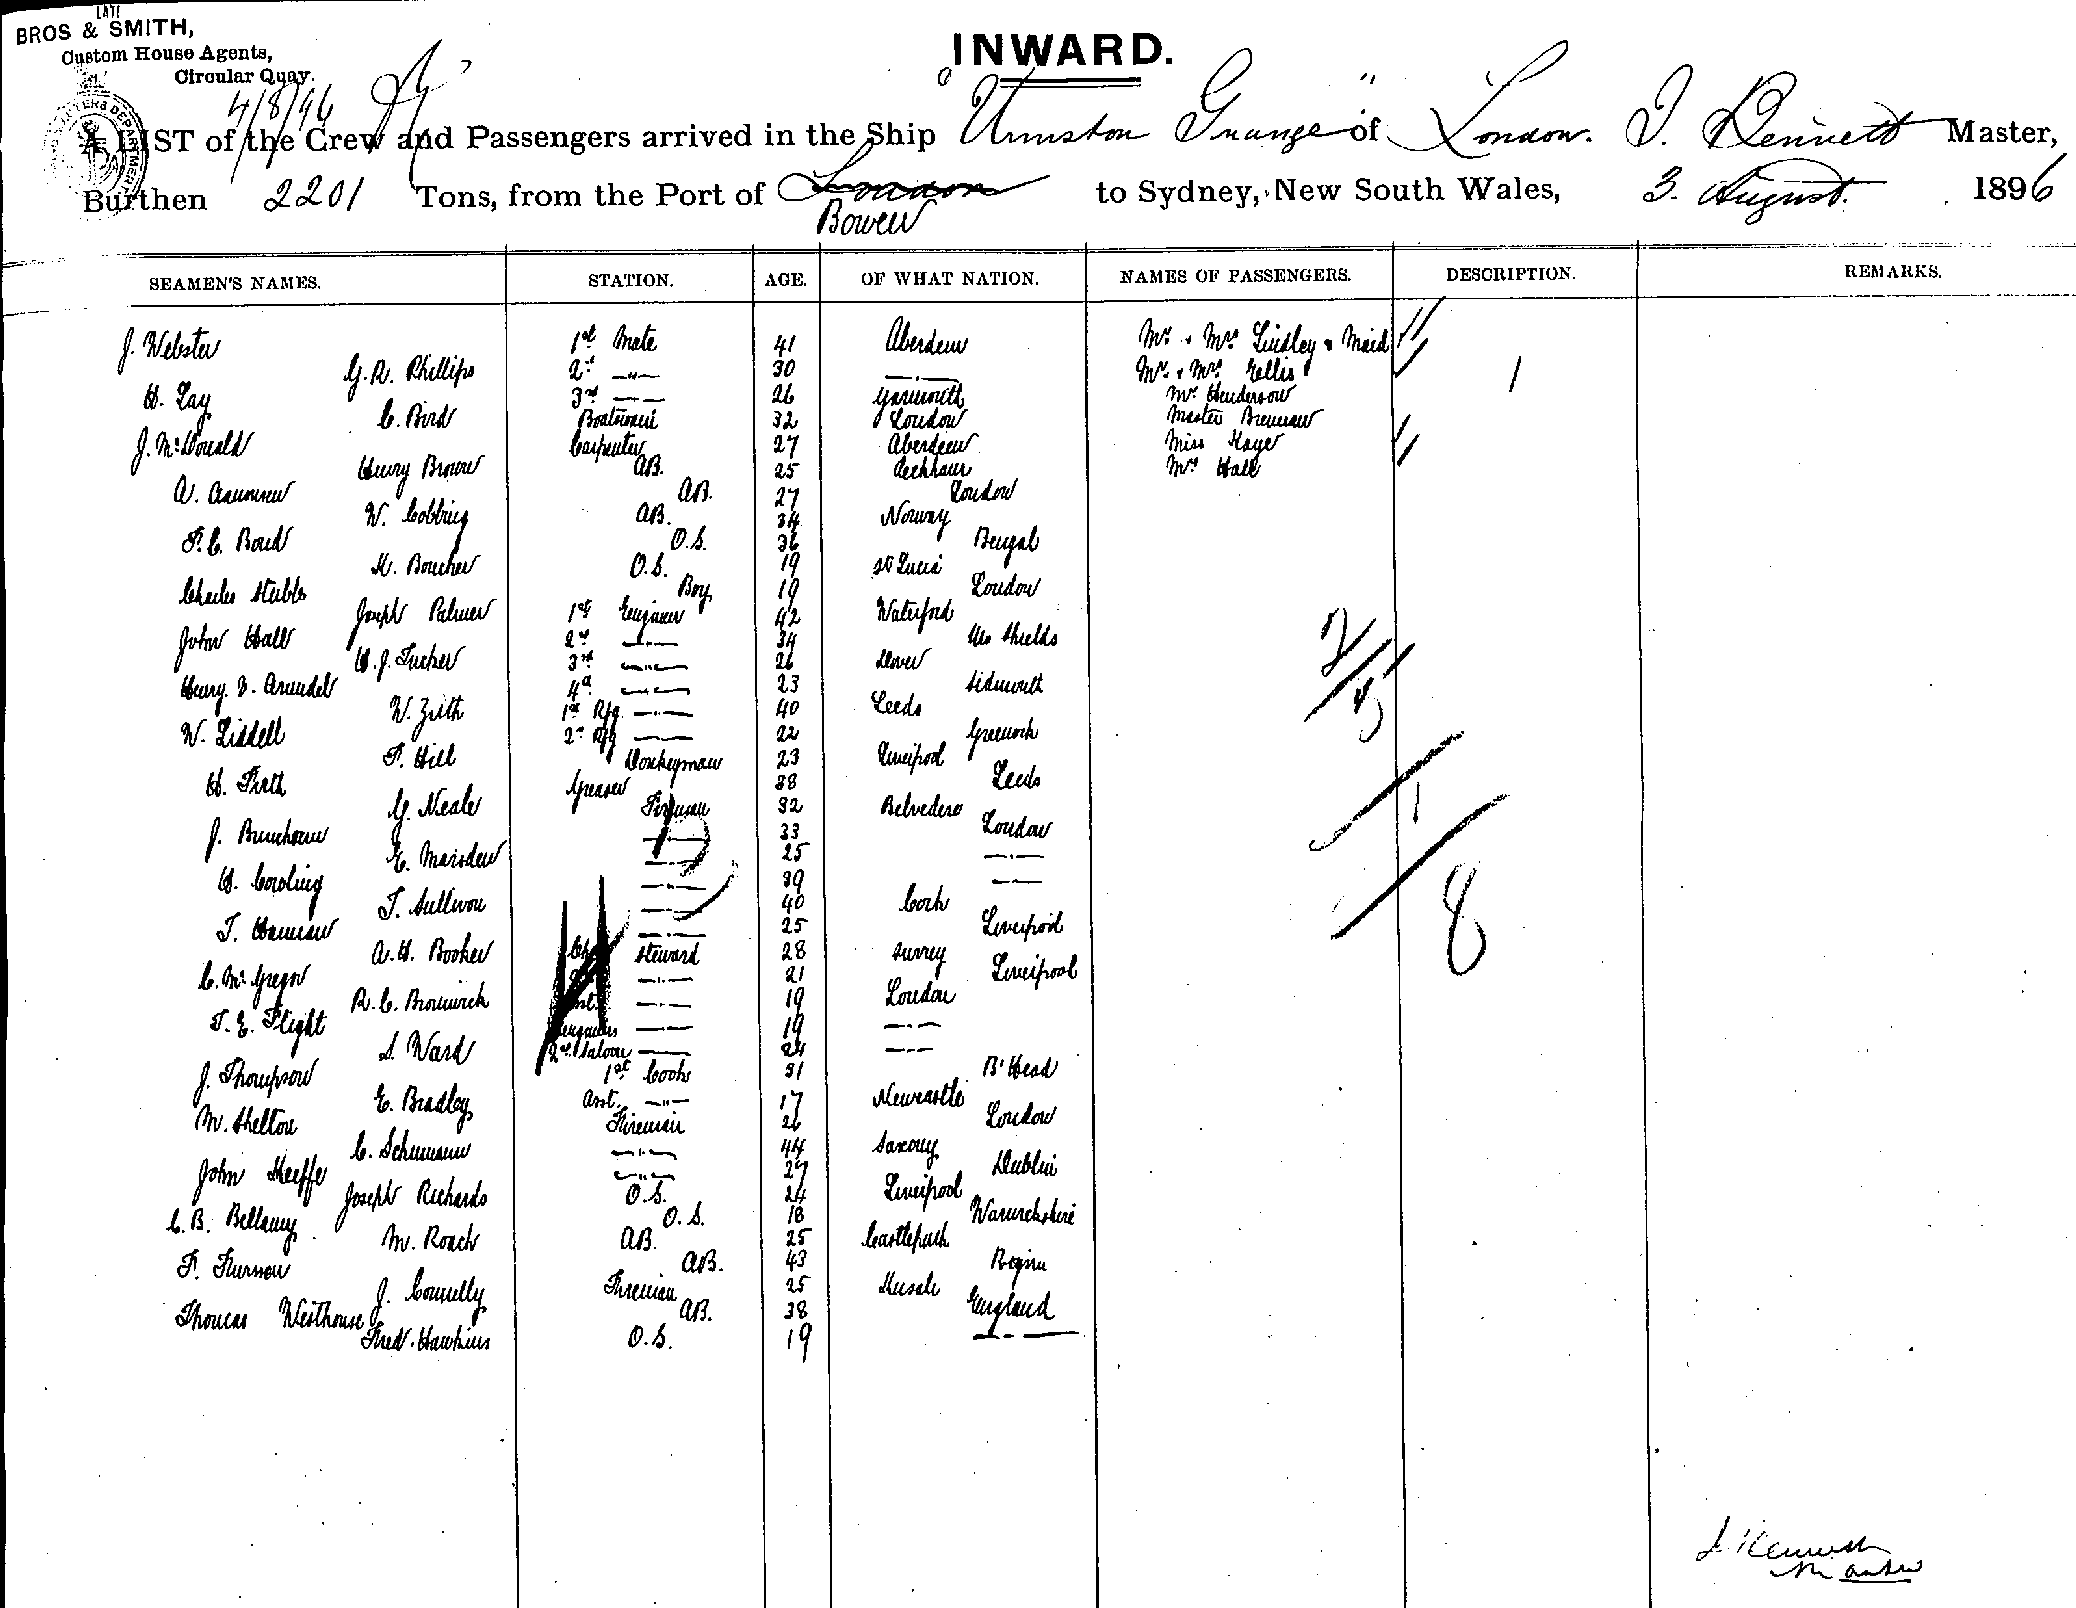 LATE
BROS & SMITH,
Custom House Agents,
Circular Quay.
4/8/96
INWARD.
A LIST of the Crew and Passengers arrived in the Ship "Urmston Grange" of London. J. Bennett Master,
Burthen 2201 Tons, from the Port of London to Sydney, New South Wales, 3. August. 1896
Bowen
SEAMEN'S NAMES. STATION. AGE. OF WHAT NATION. NAMES OF PASSENGERS. DESCRIPTION. REMARKS.
J. Webster 1st Mate 41 Aberdeen Mr. & Mrs. Lindley & Maid
G. R. Phillips 2nd —"— 30 —"— Mr. & Mrs. Ellis 1
H. Lay 3rd —"— 26 Yarmouth Mr Henderson
C. Bird Boatswain 32 London Master Brennan
J. McDonald Carpenter 27 Aberdeen Miss Kaye
Henry Brown AB. 25 Mrs Hall
A. AB. 27 London
W. Cobbing AB. 34 Norway
F. C. Bond O.S. 36 Bengal
H. Boucher O.S. 19 St Lucia
Charles Stubbs Boy 19 London
Joseph Palmer 1st Engineer 42 Waterford
John Hall 2nd —"— 34 Shields
H. J. Tucker 3rd —"— 26 Dover
Henry. V. Arundel 4th —"— 23 Sidmouth
W. Zrith 1st Rfg —"— 40 Leeds
W. Liddell 2nd Rfg —"— 22 Greenock
F. Hill Donkeyman 23 Liverpool
H. Firth Greaser 38 Leeds
G. Neale Fireman 32 Belvedere
J. —"— 33 London
E. Marsden —"— 25 —"—
H. Cowling —"— 39 —"—
T. Sullivan —"— 40 Cork
T. —"— 25 Liverpool
A. H. Booker Steward 28 Surrey
C. McGregor —"— 21 Liverpool
R. C. Bromwich —"— 19 London
T. E. Flight —"— 19 —"—
S. Ward 2nd Saloon —"— 24 —"—
J. Thompson 1st Cook 31 B'Head
E. Bradley Asst. —"— 17 Newcastle
M. Shelton Fireman 26 London
C. Schumann —"— 44 Saxony
John Keeffe —"— 27 Dublin
Joseph Richards O.S. 24 Liverpool
C. B. Bellamy O.S. 18 Warwickshire
M. Roach AB. 25
F. AB. 43
J. Connelly Fireman 25 Kinsale
Thomas Westhouse AB. 38 England
Fred. Hawkins O.S. 19 —"—
2/5
1
8
J Bennett
Master